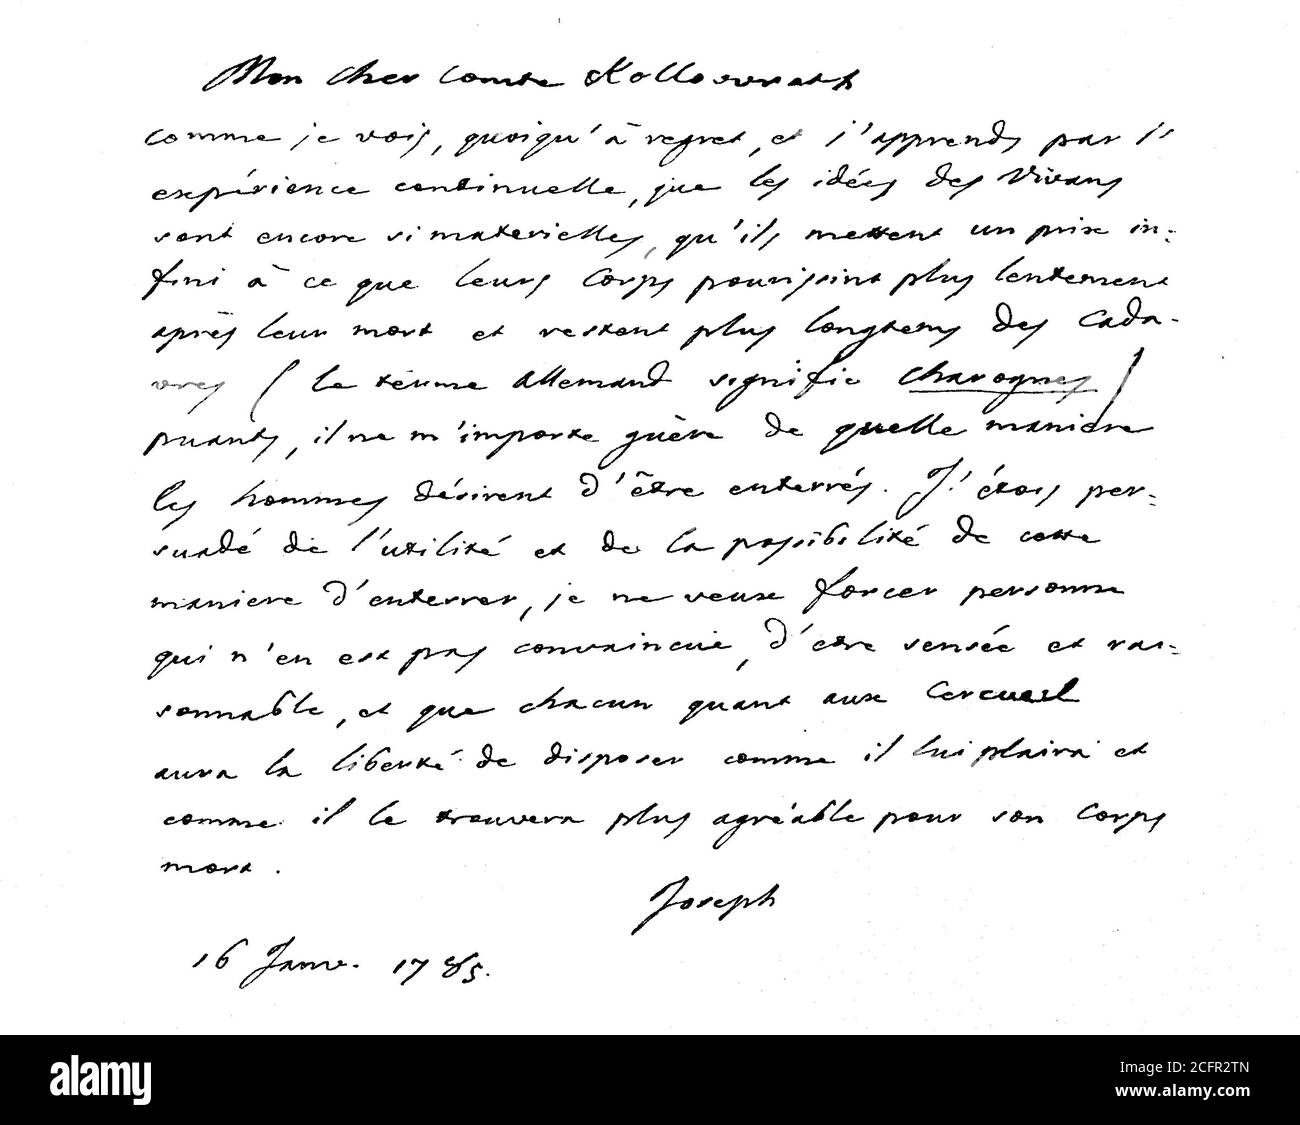 Mon cher comte Kollowrath
comme je vois, quoiqu'à regret, et j'apprends par l'
expérience continuelle, que les idées des Vivans
sont encore si materielles, qu'ils mettent un prix in=
fini à ce que leurs Corps pourissint plus lentement
après leur mort et restent plus longtems des Cada-
vres ( le terme allemand signifie charognes )
puants, il ne m'importe guère de quelle maniere
les hommes désirent d'être enterrés. J'étois per=
suadé de l'utilité et de la possibilité de cette
maniere d'enterrer, je ne veux forcer personne
qui n'en est pas convaincue, d'etre sensée et rai=
sonnable, et que chacun quant aux Cercueil
aura la liberté de disposer comme il lui plaira et
comme il le trouvera plus agréable pour son Corps
mort.
Joseph
16 Janv. 1785.
alamy
alamy
Image ID: 2CFR2TN
www.alamy.com